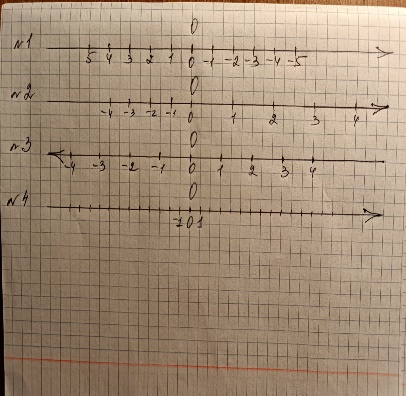 0
№1 5 4 3 2 1 0 -1 -2 -3 -4 -5
0
№2 -4 -3 -2 -1 0 1 2 3 4
0
№3 -4 -3 -2 -1 0 1 2 3 4
0
№4 -1 0 1